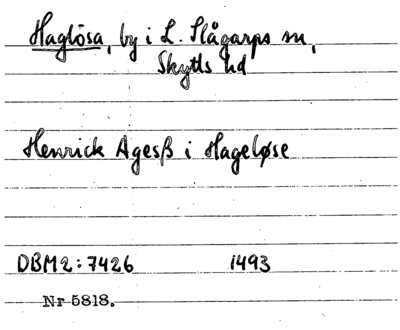 Haglösa, by i L. Slågarps sn,
Skytts hd
Henrick Agesß i Hageløse
DBM2:7426 1493
Nr 5818.